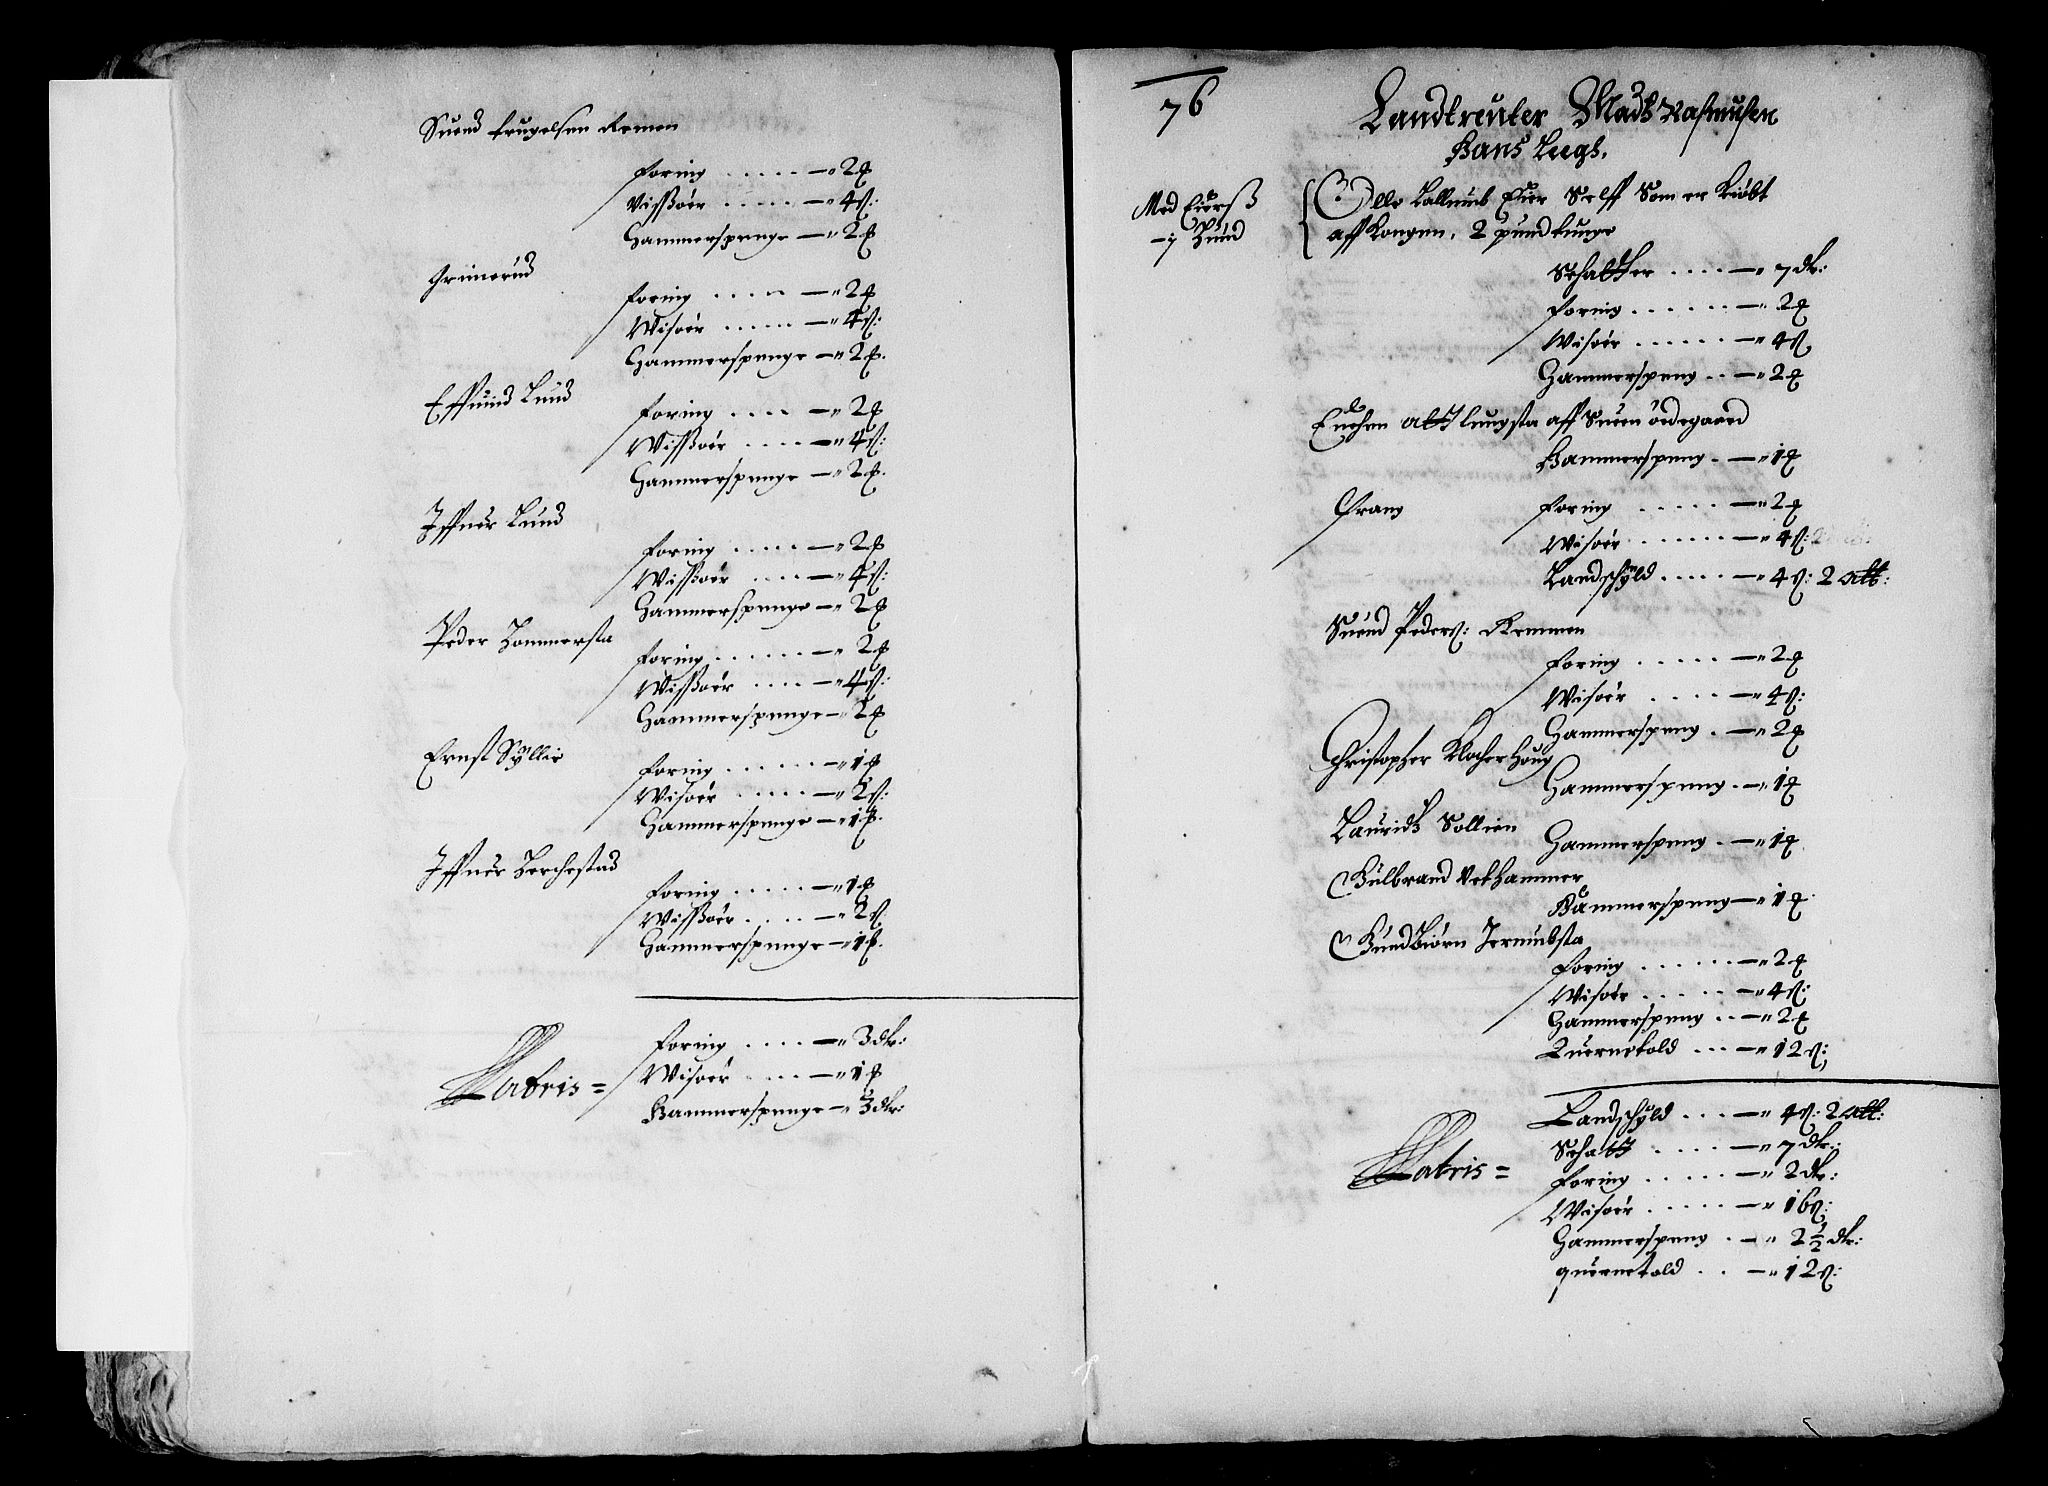 Suend Frugelsen Remen
foring ..... —" 2 ß
Vißøer ..... —" 4 s:
Hammerspenge —" 2 ß
Grimerud
foring ..... —" 2 ß
Wisøer ..... —" 4 s:
Hammerspenge —" 2 ß.
Effuind Lund
foring .... —" 2 ß
Wißøer .... —" 4 s:
Hammerspenge —" 2 ß.
Iffuer Lund
foring .... —" 2 ß
Wißøer .... —" 4 s:
Hammerspenge —" 2 ß
Peder Hommersta
foring ...... —" 2 ß
Wißøer .... —" 4 s:
Hammerspenge —" 2 ß
Ernst Syllie
foring ...... —" 1 ß
Wisøer ..... —" 2 s:
Hammerspenge —" 1 ß.
Iffuer Berchestad
foring ..... —" 1 ß
Wißøer .... —" 2 s.
Hammerspenge —" 1 ß.
Latris =
foring .... —" 3 dr:
Wisøer .... —" 1 ß
Hammerspenge —" 3 dr:
76
Landtreuter Madtz Rasmusen
Hans Leegs.
Med Eiersß
— j Hund
Olle Lallumb Eier Self Som er kiøbt
aff Kongen, 2 pund tunge
Schatter .... —" 7 dr:
foring ...... —" 2 ß
Wisøer ...... —" 4 s
Hammerspeng .. —" 2 ß
Enchen att lungsta aff Suen ødegaard
Hammerspeng . —" 1 ß
Grang
foring ..... —" 2 ß
Wisøer ....... —" 4 s:
Landschyld ..... —" 4 s: 2 alb:
Suend Peders: Remmen
foring ..... —" 2 ß
Wisøer .... —" 4 s:
Hammerspeng . —" 2 ß
Christopher Klocherhoug
Hammerspeng . —" 1 ß
Lauridtz Sollien
Hammerspeng . —" 1 ß
Gulbrand Vethammer
Hammerspeng —" 1 ß
Gundbiørn Jermubsta
foring ...... —" 2 ß
Wisøer ..... —" 4 s:
Hammerspeng .. —" 2 ß
Quernetold ... —" 12 s:
Latris =
Landschyld ... —" 4 s: 2 alb:
Schatt ..... —" 7 dr:
foring ..... —" 2 dr:
Wisøer ..... —" 16 s:
Hammerspeng . —" 2 1/2 dr:
quernetold .. —" 12 s: